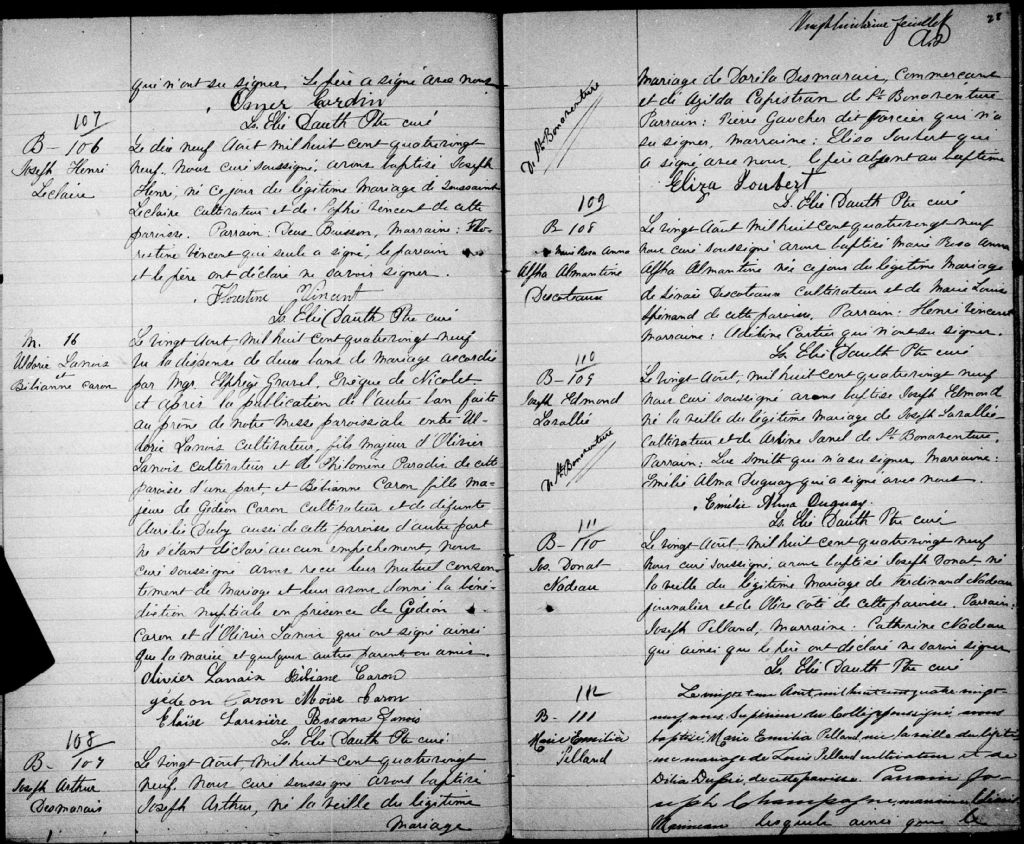 qui n'ont su signer. Le père a signé avec nous
Omer Cardin
Ls. Elie Dauth Ptre curé
107
B - 106
Joseph Henri
Leclaire
Le dix neuf Août mil huit cent quatre vingt
neuf. Nous curé soussigné avons baptisé Joseph
Henri, né ce jour du légitime Mariage de Toussaint
Leclaire cultivateur et de Sophie Vencent de cette
paroisse. Parrain: Deus Buisson, Marraine: Flo-
restine Vencent qui seule a signé, le parrain
et le père ont déclaré ne savoir signer.
Florestine Vincent
Ls. Elie Dauth Ptre curé
M. 16
Uldoric Lanois
et
Bébianne Caron
Le vingt Août mil huit cent quatre vingt neuf
Vu la dispense de deux bans de mariage accordée
par Mgr. Elphège Gravel, Evêque de Nicolet
et après la publication de l'autre ban faite
au prône de notre Messe paroissiale entre Ul-
doric Lanois cultivateur, fils majeur d'Olivier
Lanois cultivateur et de Philomine Paradis de cette
paroisse d'une part, et Bébianne Caron fille ma-
jeure de Gédéon Caron cultivateur et de défunte
Aurélie Duby aussi de cette paroisse d'autre part
ne s'étant déclaré aucun empêchement, nous
curé soussigné avons reçu leur mutuel consen-
tement de Mariage et leur avons donné la béné-
diction nuptiale en présence de Gédéon
Caron et d'Olivier Lanois qui ont signé ainsi
que la mariée et quelques autres parents ou amis.
Olivier Lanain Bibiane Caron
gédéon Caron Moïse Caron
Elaïse Larivière Rosana Lanois
Ls. Elie Dauth Ptre curé
108
B - 107
Joseph Arthur
Desmarais
Le vingt Août mil huit cent quatre vingt
neuf. Nous curé soussigné avons baptisé
Joseph Arthur, né la veille du légitime
Mariage
28
Vingt huitième feuillet
mariage de Dorila Desmarais, Commerçant
et de Azilda Capistran de St. Bonaventure
Parrain: Pierre Gaucher dit Parcier qui n'a
su signer, marraine: Elisa Joubert qui
a signé avec nous, le père absent au baptême
Eliza Joubert
Ls. Elie Dauth Ptre curé
St. Bonaventure
109
B 108
Marie Rosa Anna
Alpha Almantine
Descoteaux
Le vingt Août mil huit cent quatre vingt neuf
nous curé soussigné avons baptisé Marie Rosa Anna
Alpha Almantine née ce jour du légitime Mariage
de Lénais Descoteaux cultivateur et de Marie Louise
Spénard de cette paroisse. Parrain: Henri Vencent
marraine: Adéline Cartier qui n'ont su signer.
Ls. Elie Dauth Ptre curé
110
B - 109
Joseph Edmond
Lavallée
St. Bonaventure
Le vingt Août, mil huit cent quatre vingt neuf
nous curé soussigné avons baptisé Joseph Edmond
né la veille du légitime mariage de Joseph Lavallée
cultivateur et de Janel de St. Bonaventure.
Parrain: Luc Smith qui n'a su signer, Marraine:
Emélie Alma Duguay qui a signé avec nous.
Emélie Alma Duguay
Ls. Elie Dauth Ptre curé
111
B - 110
Jos. Donat
Nadeau
Le vingt Août, mil huit cent quatre vingt neuf
nous curé soussigné, avons baptisé Joseph Donat né
la veille du légitime mariage de Ferdinand Nadeau
journalier et de Olive Coté de cette paroisse. Parrain:
Joseph Pelland, Marraine: Catherine Nadeau
qui ainsi que le père ont déclaré ne savoir signer
Ls. Elie Dauth Ptre curé
112
B - 111
Marie Emmilia
Pelland
Le vingt un Août mil huit cent quatre vingt
neuf nous Supérieur du Collège soussigné, avons
baptisé Marie Emilia Pelland née la veille du légiti-
me mariage de Louis Pelland cultivateur et de
Délia Dupré de cette paroisse. Parrain Jo-
seph Champagne, marraine
lesquels ainsi que le